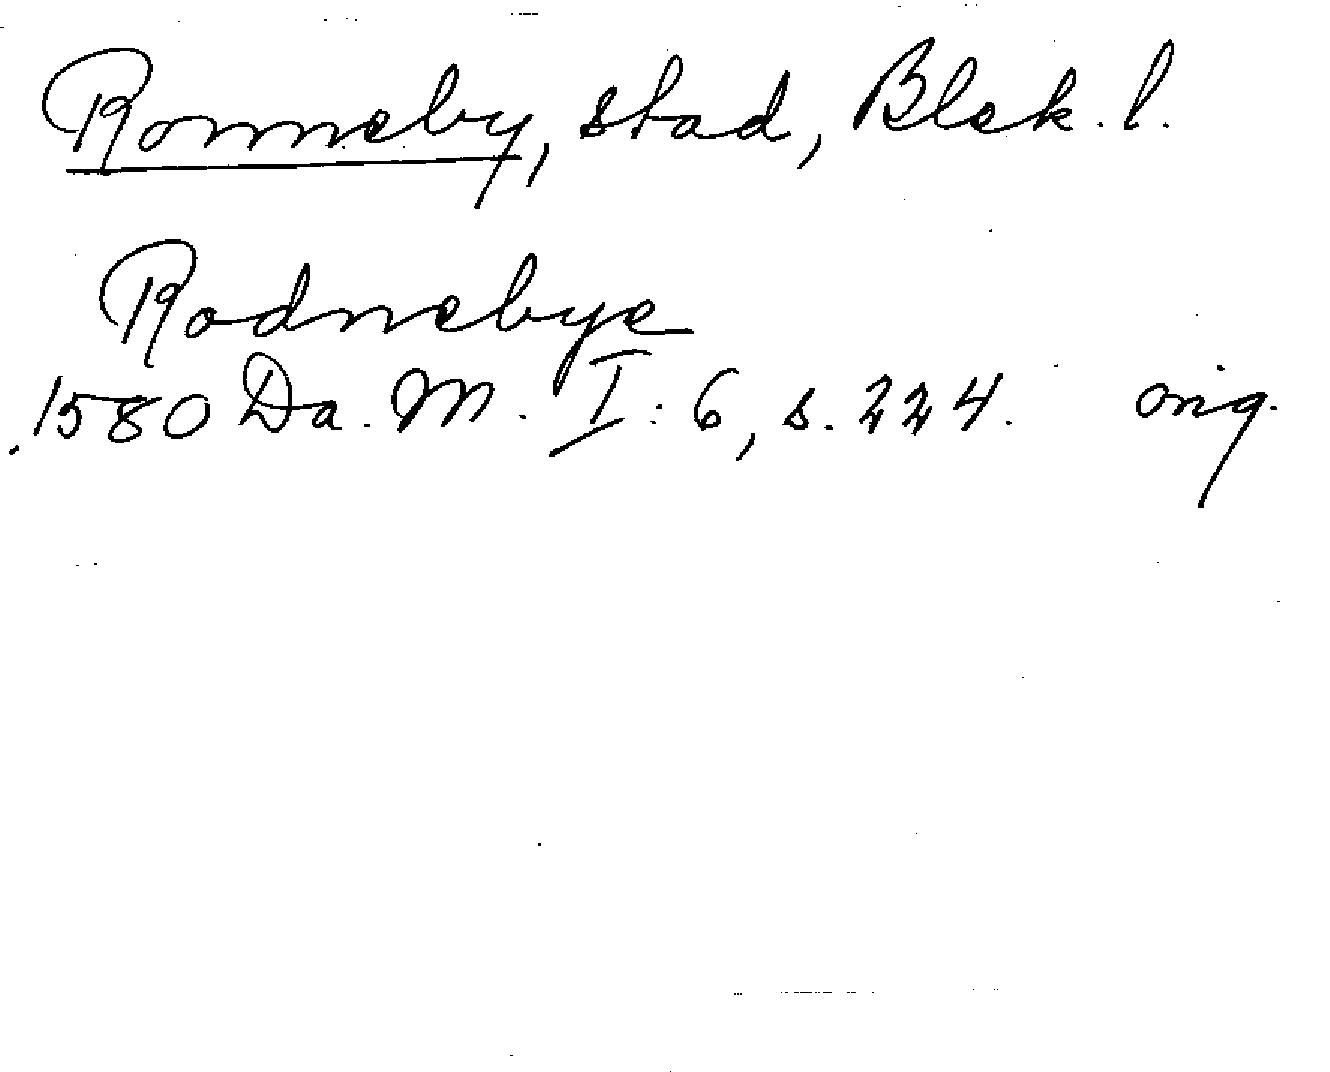 Ronneby, stad, Blek. l.
Rodnebye
1580 Da. M. I: 6, s. 224. orig.